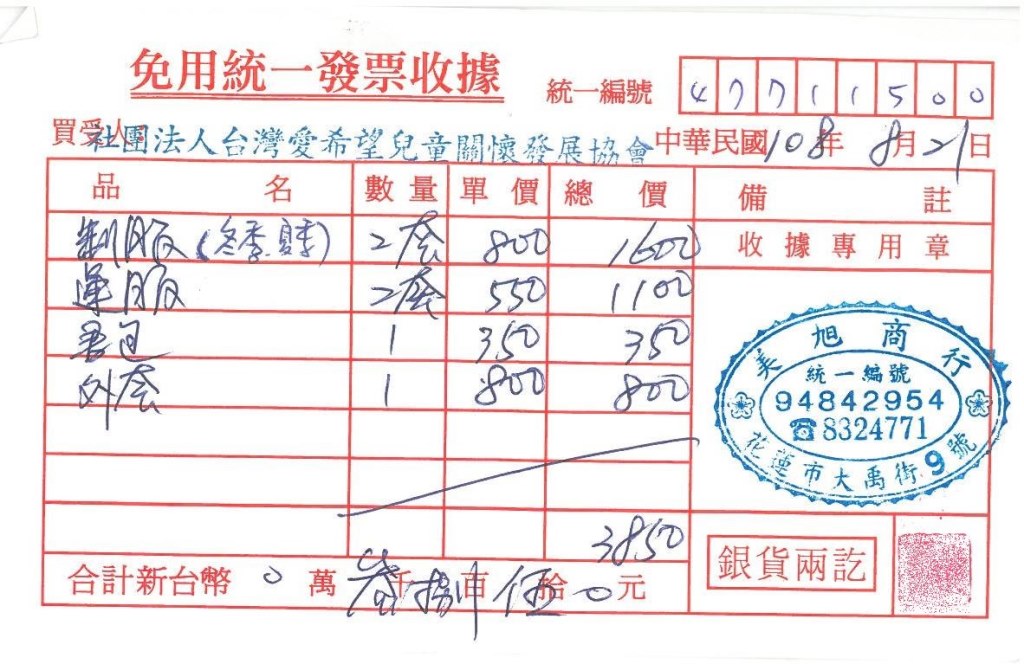 免用統一發票收據
統一編號 47711500
買受人 社團法人台灣愛希望兒童關懷發展協會 中華民國108年8月21日
品名 數量 單價 總價 備註
制服(冬季.夏季) 2套 800 1600 收據專用章
運服 2套 550 1100
書包 1 350 350
外套 1 800 800
美旭商行
統一編號
94842954
☎8324771
花蓮市大禹街9號
3850
合計新台幣 0萬叁千捌百伍拾0元
銀貨兩訖